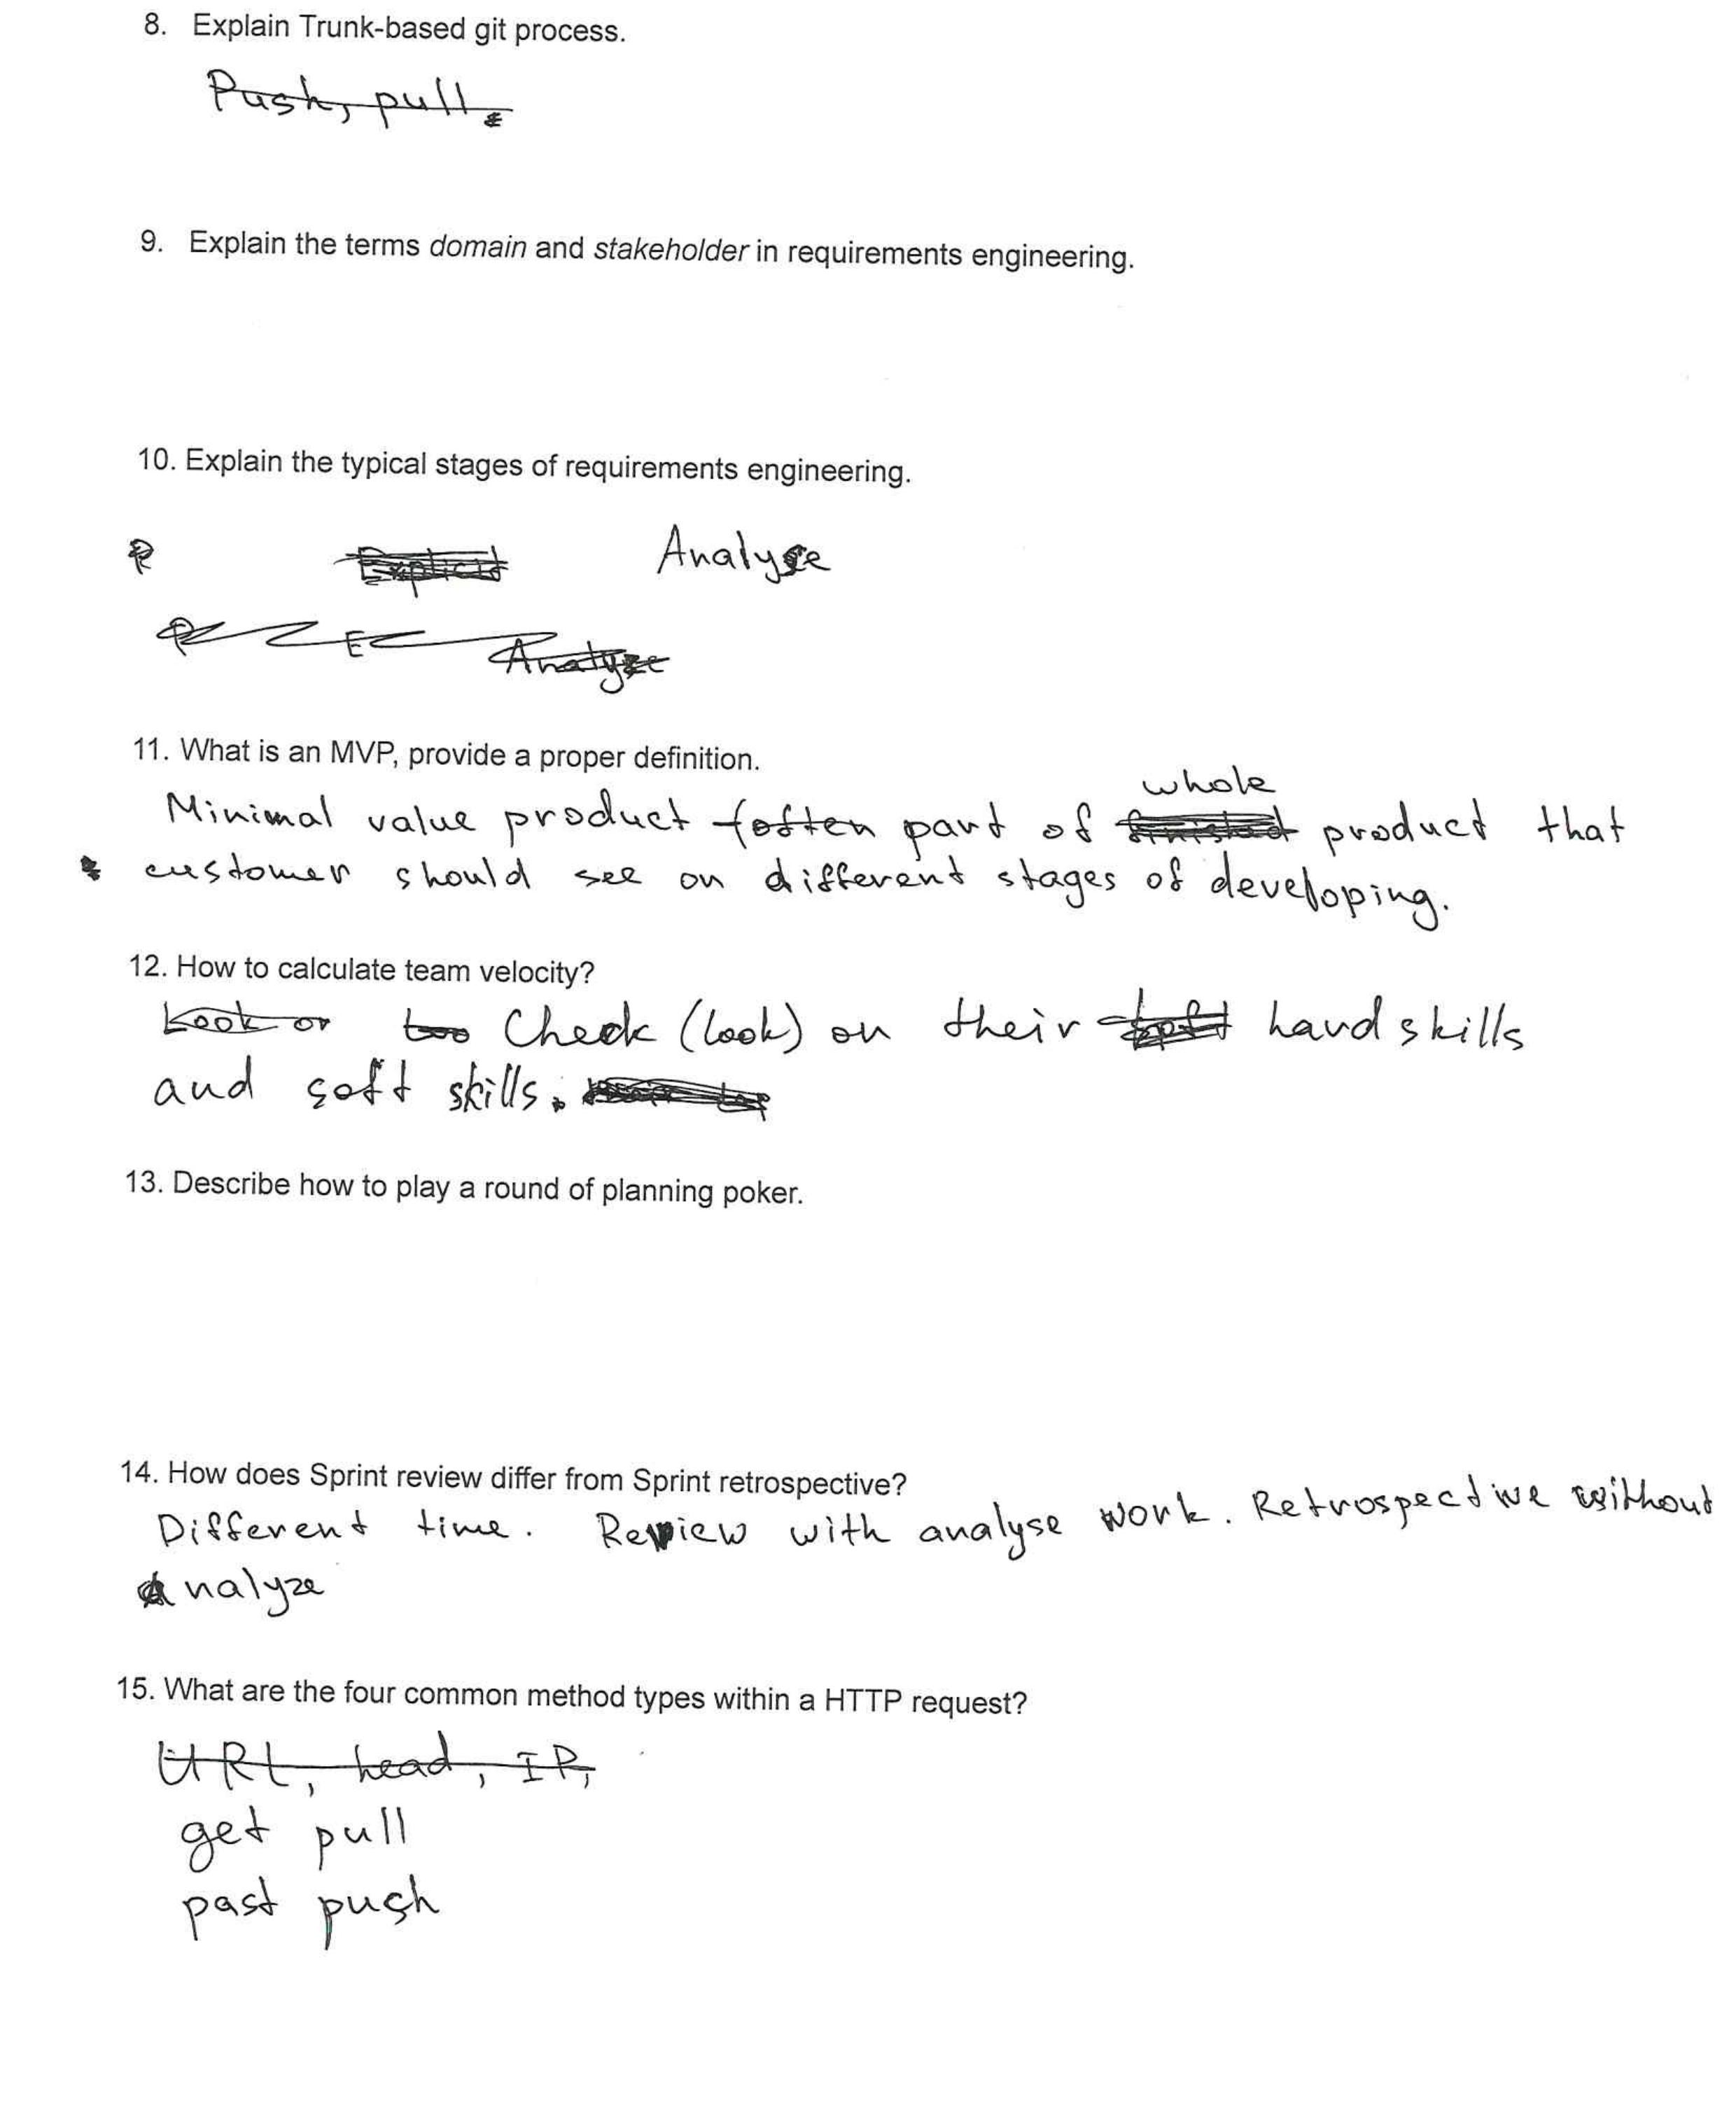 8. Explain Trunk-based git process.
Push, pull.
9. Explain the terms domain and stakeholder in requirements engineering.
10. Explain the typical stages of requirements engineering.
R Explicit Analyse
R E Analyze
11. What is an MVP, provide a proper definition.
whole
Minimal value product (often part of finished product that
customer should see on different stages of developing.
12. How to calculate team velocity?
Look on too Check (look) on their soft hard skills
and soft skills.
13. Describe how to play a round of planning poker.
14. How does Sprint review differ from Sprint retrospective?
Different time. Review with analyse work. Retrospective without
analyze
15. What are the four common method types within a HTTP request?
URL, head, IP,
get pull
past push